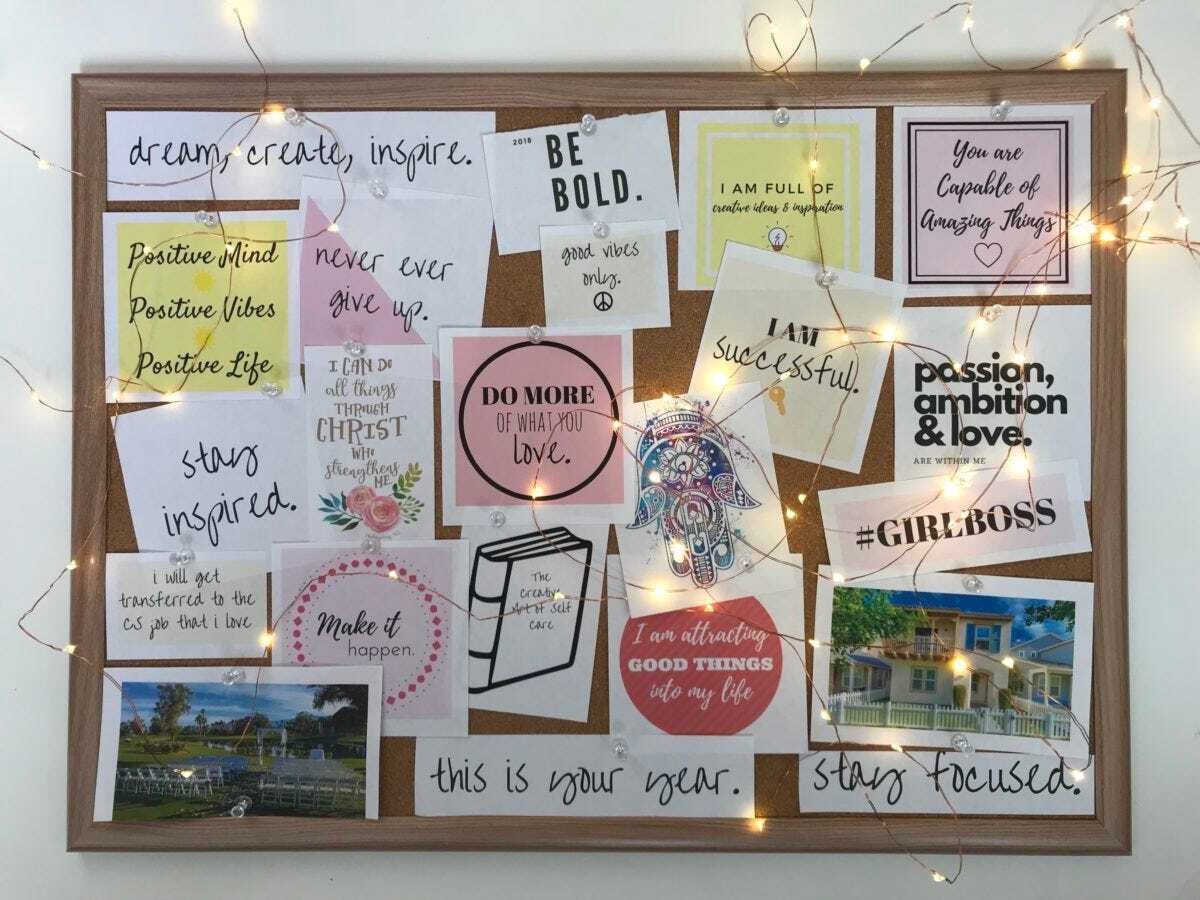 dream, create, inspire.
2018
BE
BOLD.
I AM FULL OF
creative ideas & inspiration
You are
Capable of
Amazing Things
Positive Mind
Positive Vibes
Positive Life
never ever
give up.
good vibes
only.
I AM
successful.
passion,
ambition
& love.
ARE WITHIN ME
I CAN DO
all things
THROUGH
CHRIST
WHO
strengthens
ME
DO MORE
OF WHAT YOU
love.
stay
inspired.
#GIRLBOSS
i will get
transferred to the
CS job that i love
Make it
happen.
The
Creative
Art of Self
Care
I am attracting
GOOD THINGS
into my life
this is your year.
stay focused.